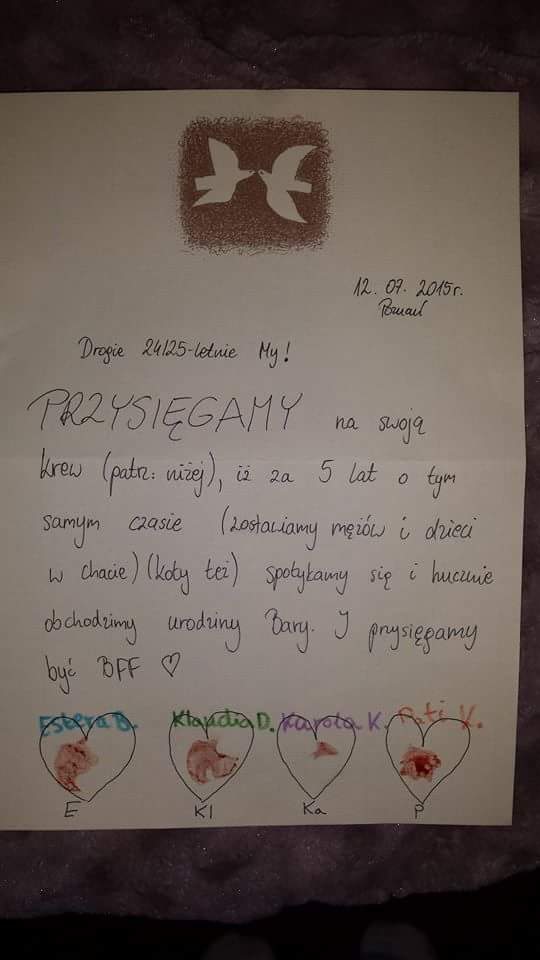 12.07.2015r.
Poznań
Drogie 24/25-letnie My!
PRZYSIĘGAMY na swoją
krew (patrz: niżej), iż za 5 lat o tym
samym czasie (zostawiamy mężów i dzieci
w chacie) (koty też) spotykamy się i hucznie
obchodzimy urodziny Bary. I prysięgamy
być BFF ♡
Estera B. Klaudia D. Karola K. Pati K.
E Kl Ka P